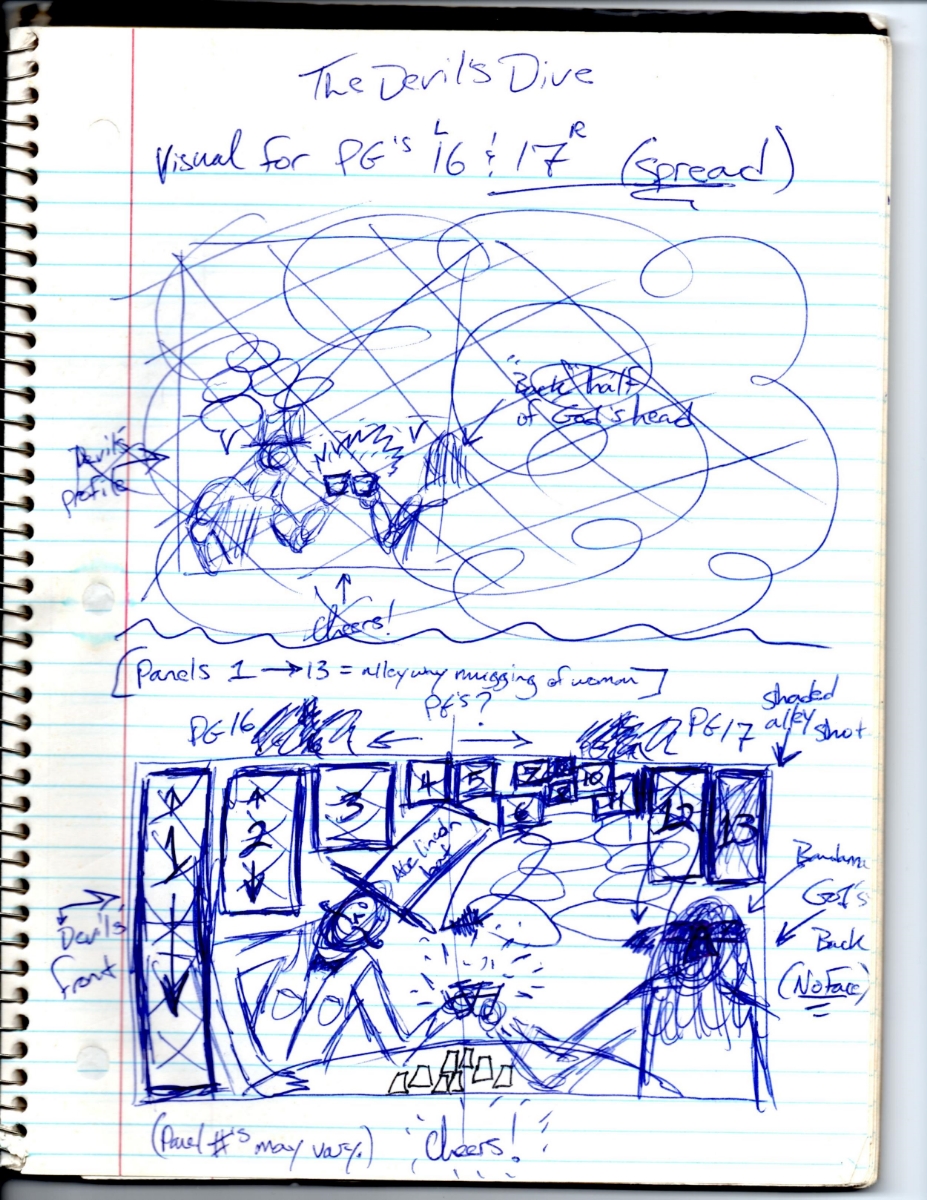 The Devil's Dive
Visual for PG's 16 & 17 (spread)
L R
"Back" half
of God's head
Devil's
profile
Cheers!
[Panels 1 → 13 = alleyway mugging of woman]
PG's?
PG 16 ← → PG 17
shaded
alley shot
1 2 3 4 5 6 7 8 10 11 12 13
Abe lincoln
beard
Devil's
front
Bandana
God's
Back
(No face)
(Panel #'s may vary.)
Cheers!